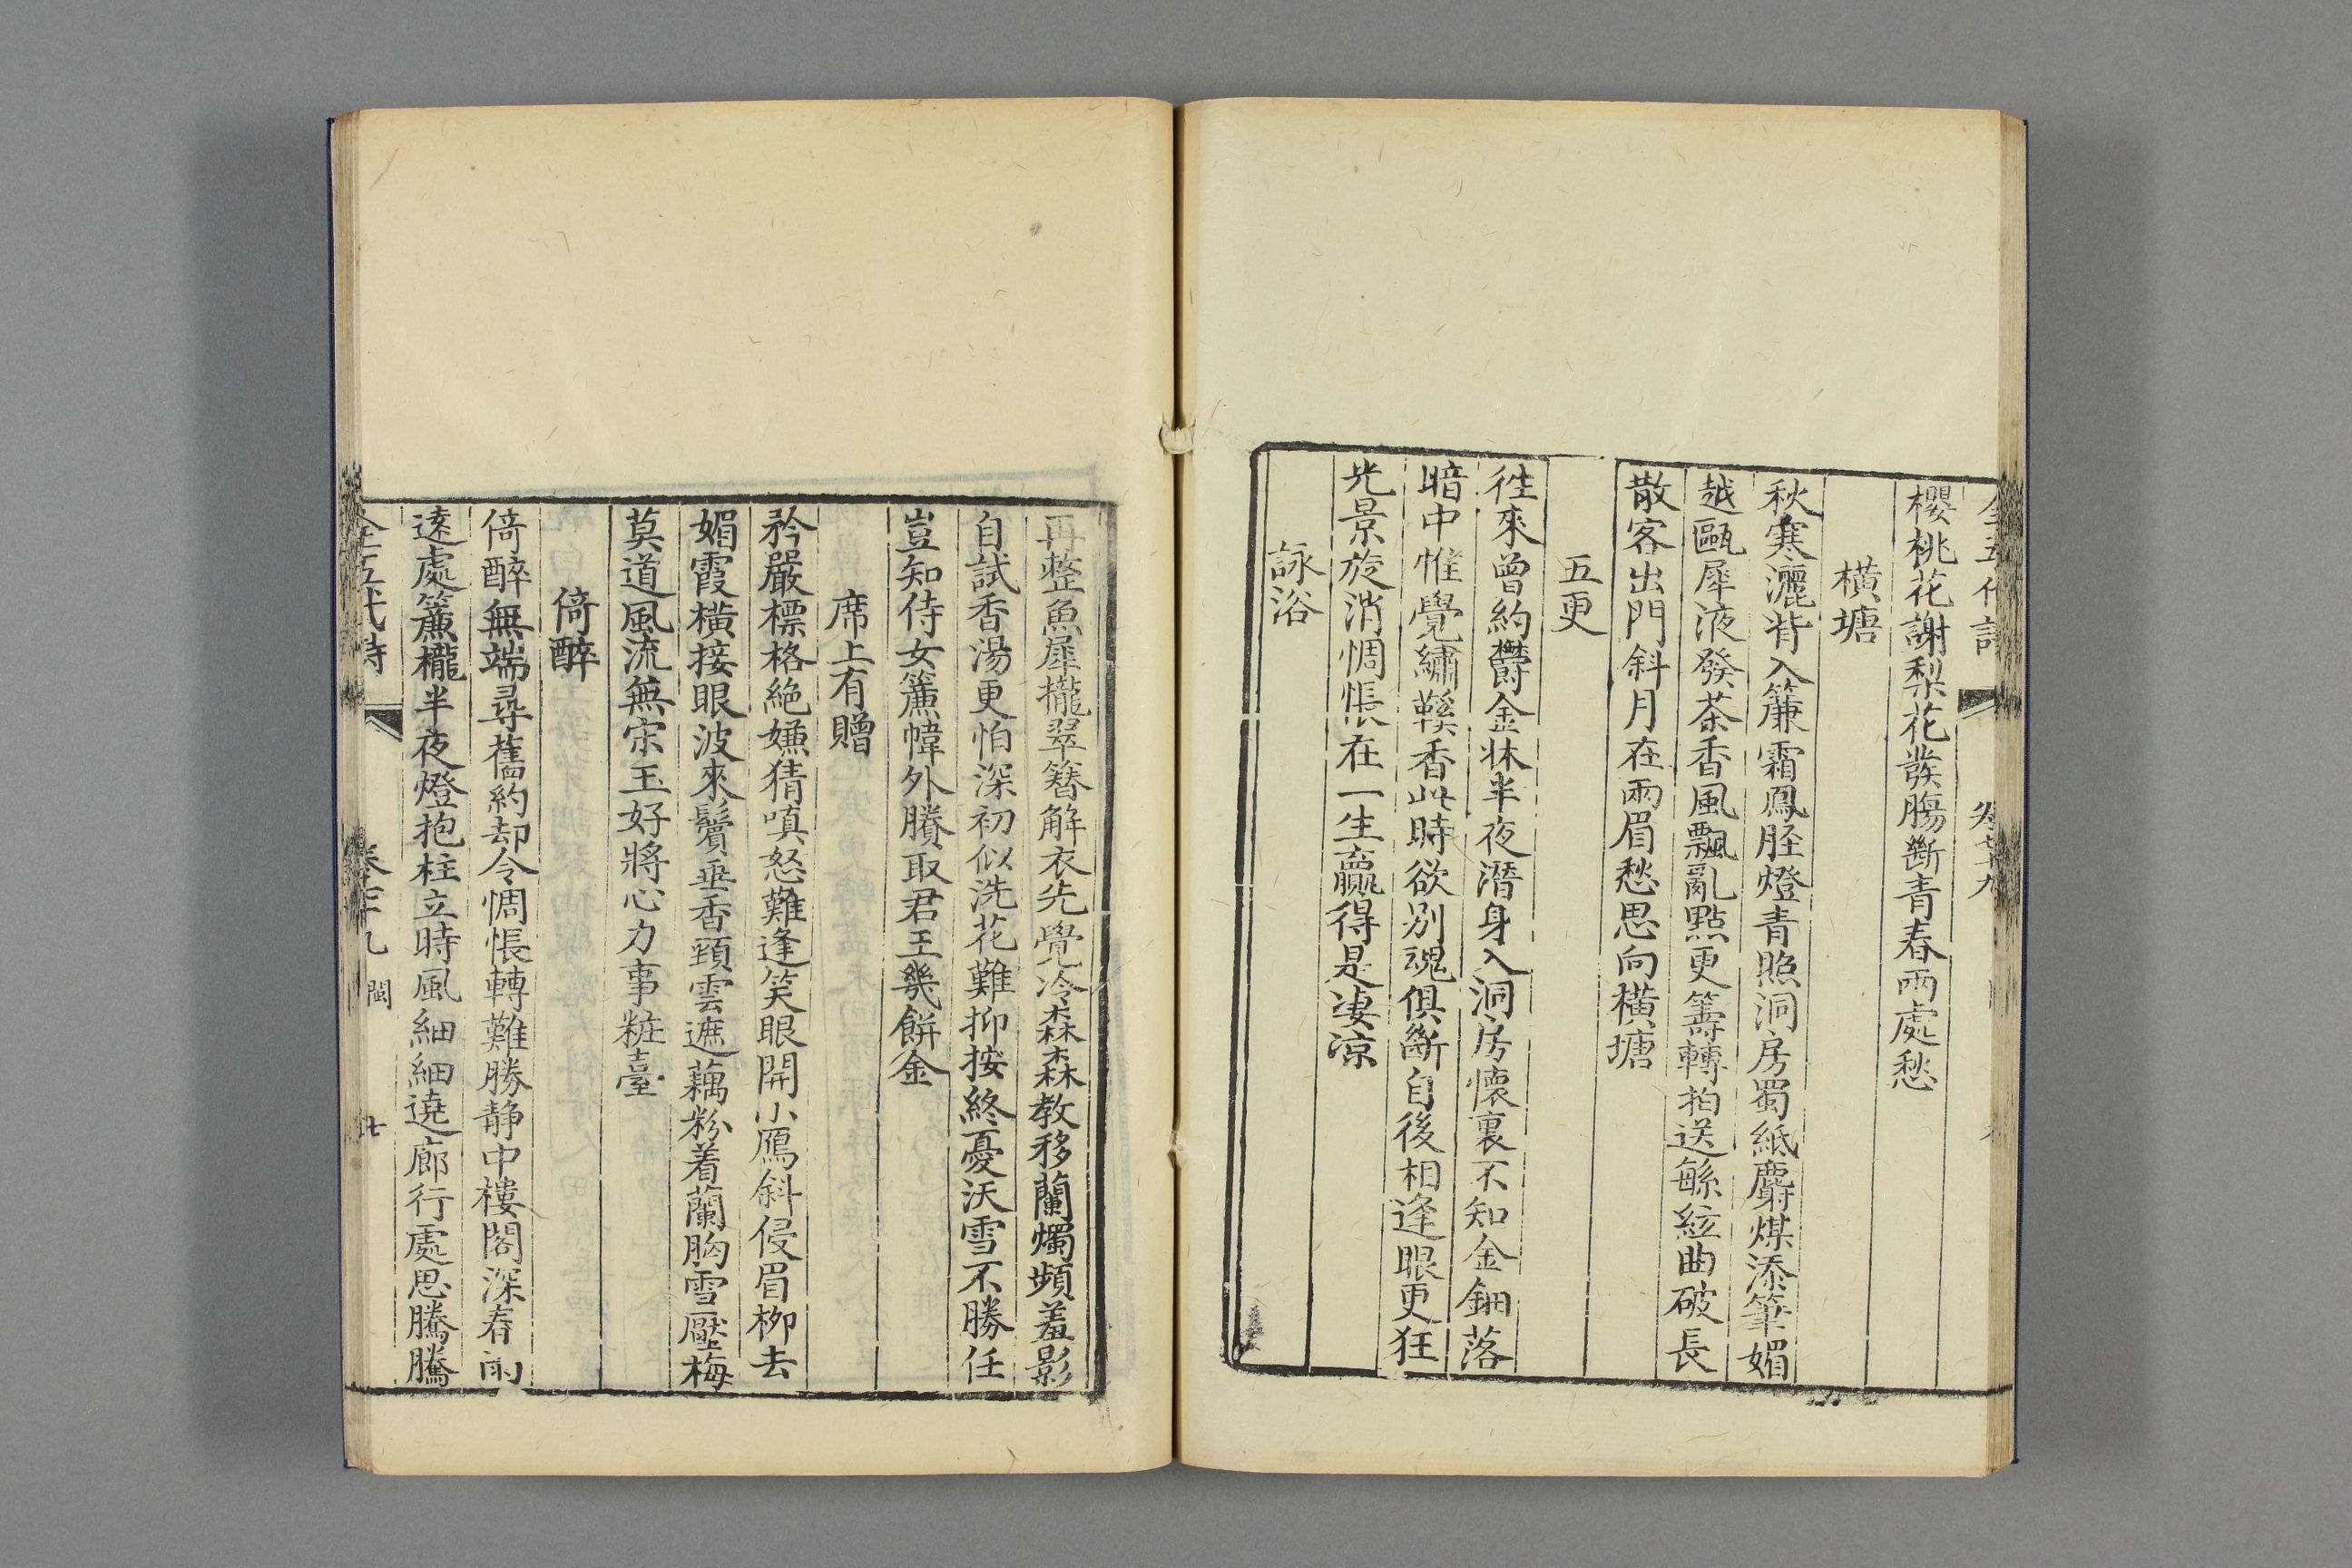 櫻桃花謝梨花發膓斷青春兩處愁
橫塘
秋寒灑背入簾霜鳳脛燈青照洞房蜀紙麝煤添筆媚
越甌犀液發茶香風飄亂點更籌轉拍送繁絃曲破長
散客出門斜月在兩眉愁思向橫塘
五更
徃來曾約鬱金牀半夜潛身入洞房懷裏不知金鈿落
暗中惟覺繡鞵香此時欲別魂俱斷自後相逢眼更狂
光景旋消惆悵在一生贏得是淒凉
詠浴
再整魚犀攏翠簪解衣先覺冷森森教移蘭燭頻羞影
自試香湯更怕深初似洗花難抑按終憂沃雪不勝任
豈知侍女簾幃外賸取君王幾餅金
席上有贈
矜嚴標格絶嫌猜嗔怒難逢笑眼開小鴈斜侵眉柳去
媚霞橫接眼波來鬢垂香頸雲遮藕粉着蘭胸雪壓梅
莫道風流無宋玉好將心力事粧臺
倚醉
倚醉無端尋舊約却令惆悵轉難勝静中樓閣深春雨
遠處簾櫳半夜燈抱柱立時風細細遶廊行處思騰騰
閩